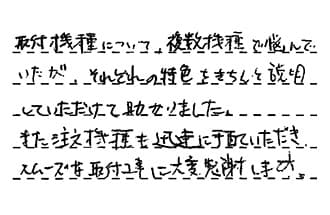 取付機種について、複数機種で悩んで
いたが、それぞれの特色をきちんと説明
していただけて助かりました。
また注文機種も迅速に手配いただき
スムーズな取付工事に大変感謝します。